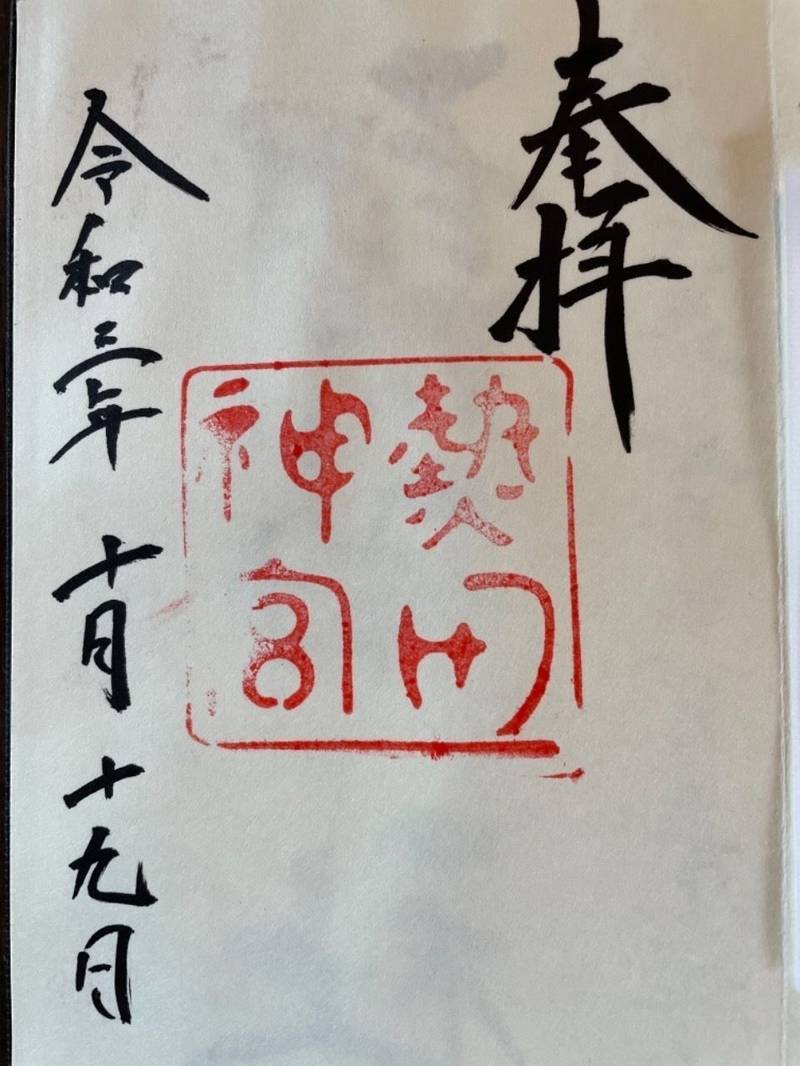 奉拝
熱田
神宮
令和三年十月十九日